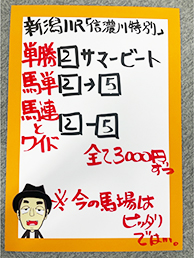 新潟11R「信濃川特別」
単勝②サマービート
馬単②→⑤
馬連とワイド②-⑤
全て3000円ずつ
※今の馬場は
ピッタリ
では…。